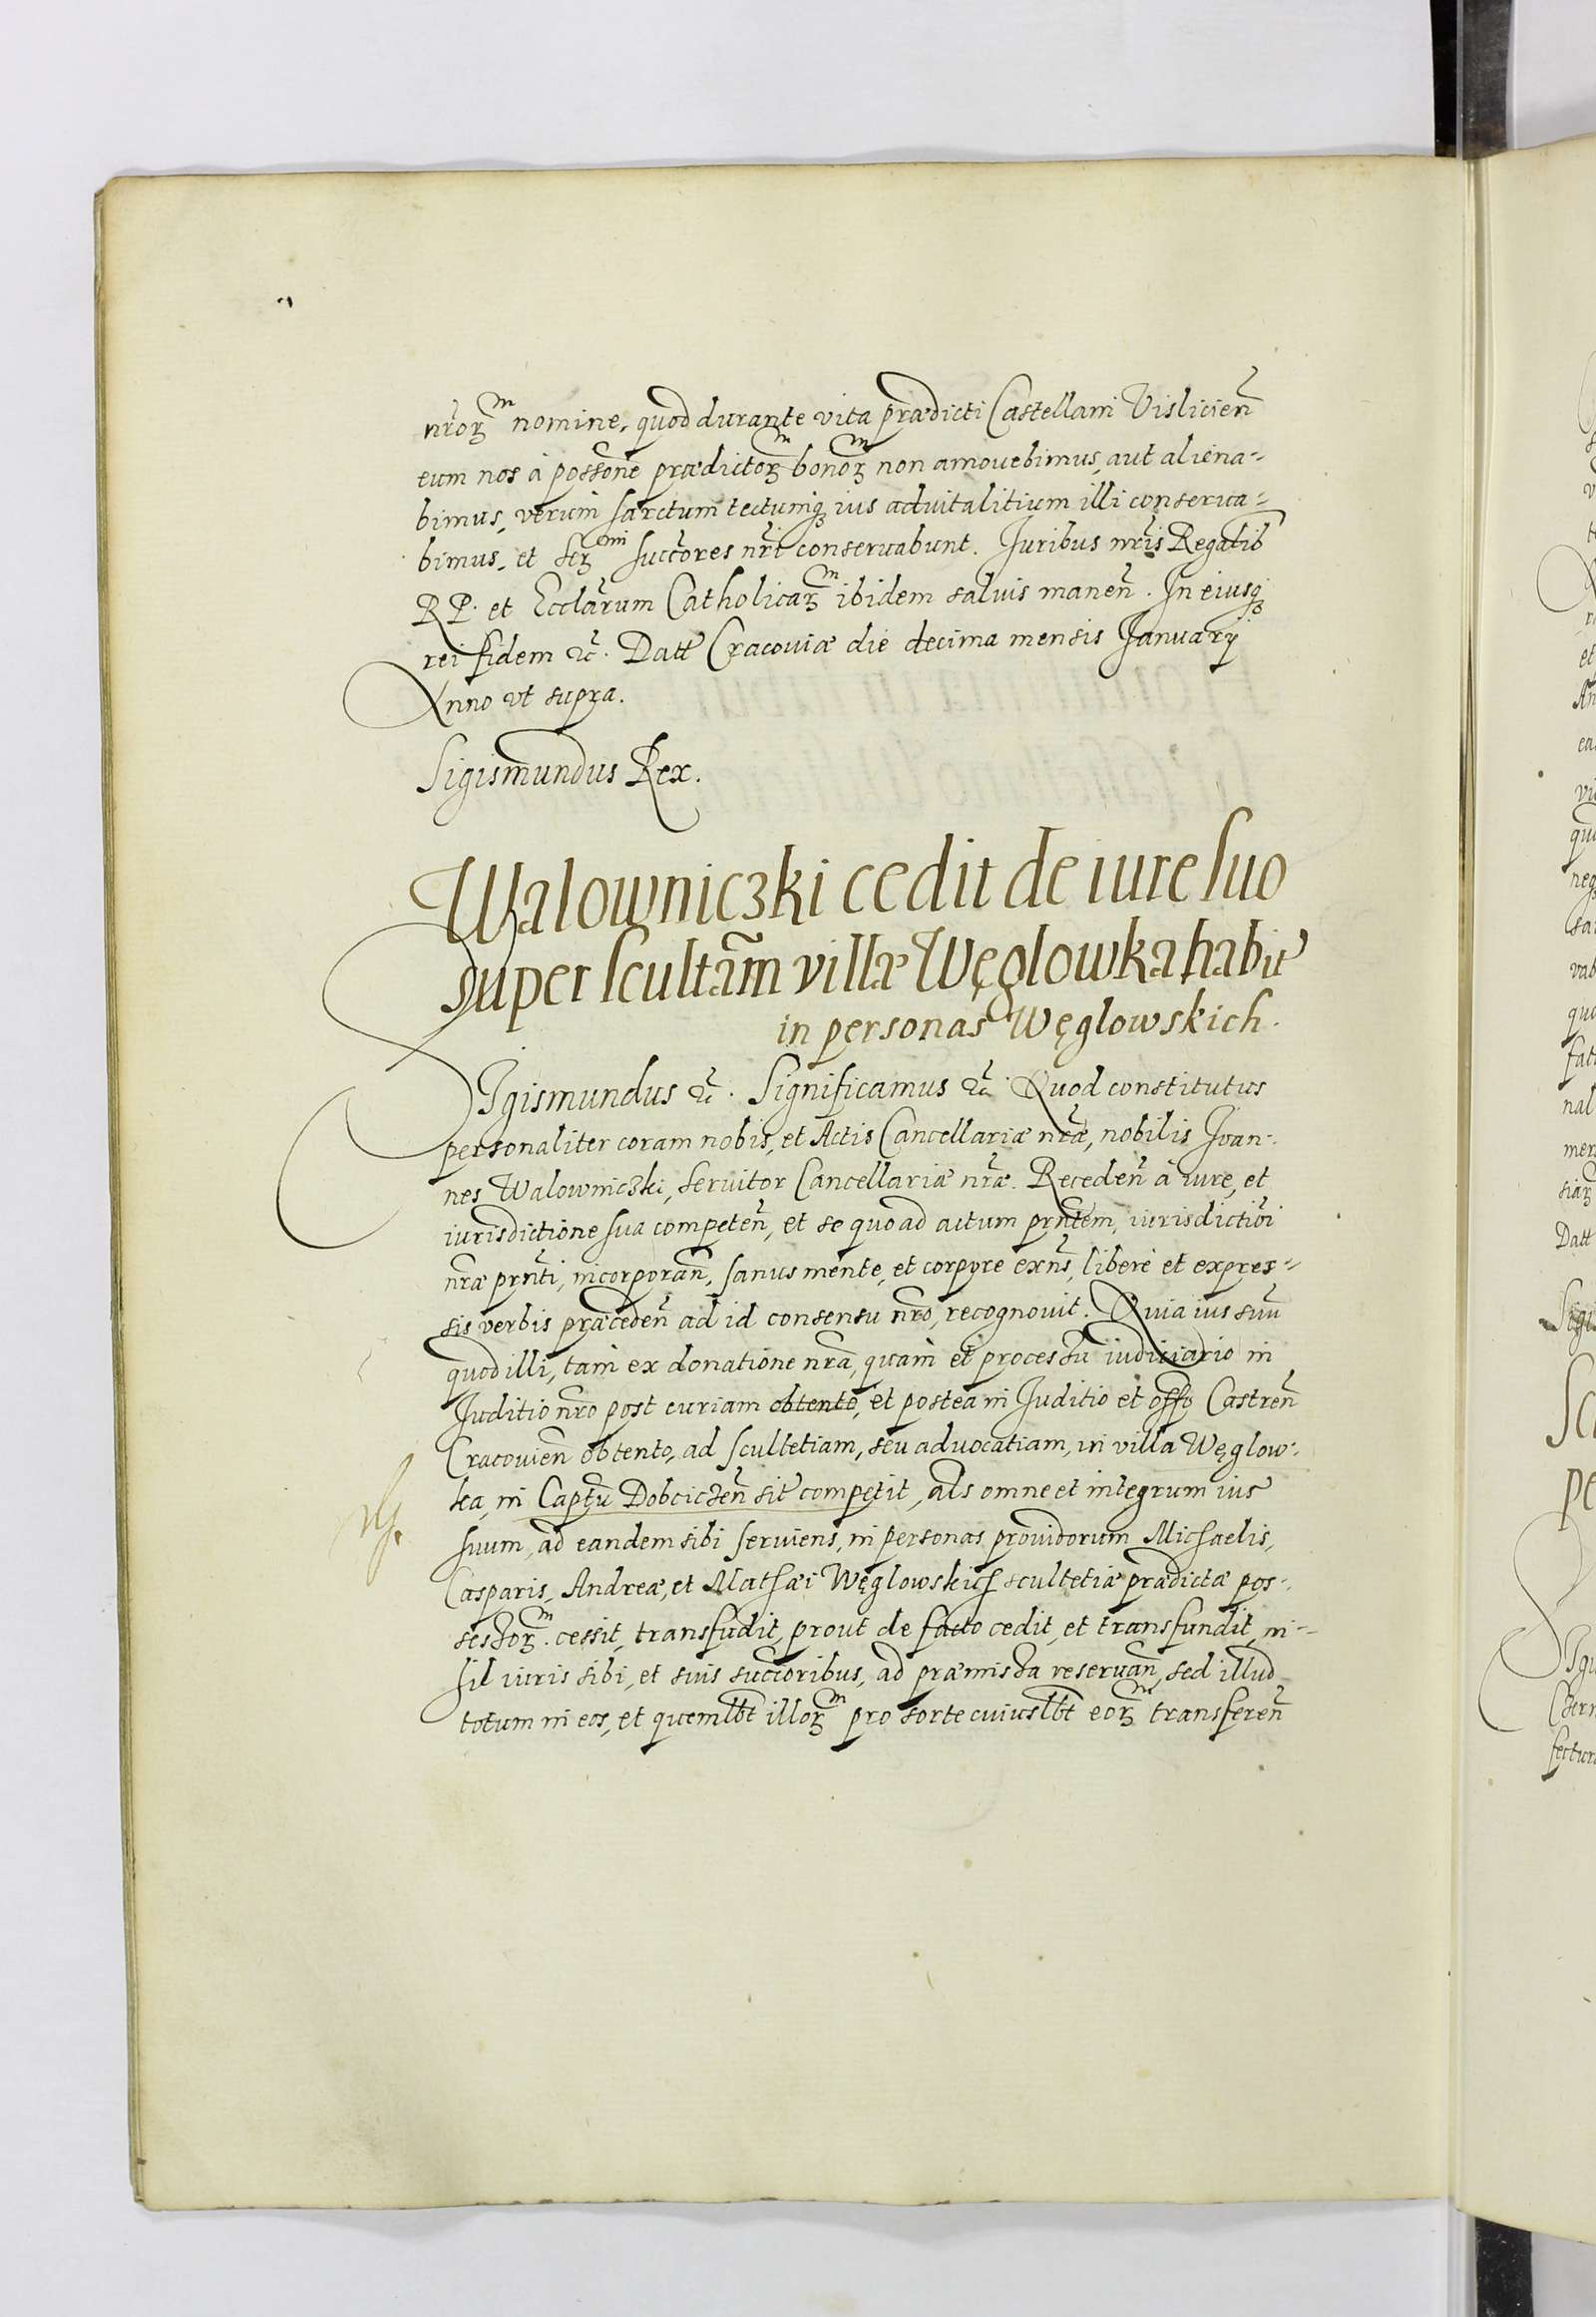 nr̃orꝫ m nomine, quod durante vita prædicti Castellani Vislicień
eum nos à possõne prædictorꝫ m bonorꝫ m non amovebimus, aut aliena-
bimus, verum sarctum tectumqꝫ ius advitalitium illi conserva-
bimus, et serꝫ mi succr̃ores nr̃i conservabunt. Juribus nr̃is Regalib
R P. et Ecclãrum Catholicarꝫ m ibidem salvis maneñ. In eiusqꝫ
rei fidem ꝛc̃. Datt Cracoviæ die decima mensis Januarij
Anno vt supra.
Sigismundus Rex.
Walowniczki cedit de iure suo
super scultãm villæ Węglowka habit
in personas Węglowskich.
SIgismundus ꝛc̃. Significamus ꝛc̃. Quod constitutus
personaliter coram nobis, et Actis Cancellariæ nr̃æ, nobilis Ioan-
nes Walowniczki, servitor Cancellariæ nr̃æ. Recedeñ à iure, et
iurisdictione sua competeñ, et se quo ad actum prñtem, iurisdictiõi
nr̃æ prñti, incorporañ, sanus mente, et corpore exñs, liberè et expres-
sis verbis præcedeñ ad id consensu nr̃o, recognovit. Quia ius suũ
quod illi, tam ex donatione nr̃a, quam et processu iudiciario in
Juditio nr̃o post curiam obtento, et postea in Juditio et offõ Castreñ
Cracovieñ obtento, ad scultetiam, seu advocatiam, in villa Węglow-
ka, in Captũ Dobcicseñ sit competit, als omne et integrum ius
suum, ad eandem sibi serviens, in personas providorum Michaelis,
Casparis, Andreæ, et Mathæi Węglowskich scultetiæ prædictæ pos-
sessorꝫ m. cessit, transfudit, prout de facto cedit, et transfundit, ni-
hil iuris sibi, et suis succr̃oribus, ad præmissa reservañ, sed illud
totum in eos, et quemlbt illorꝫ m pro sorte cuiuslbt eorꝫ m transfereñ